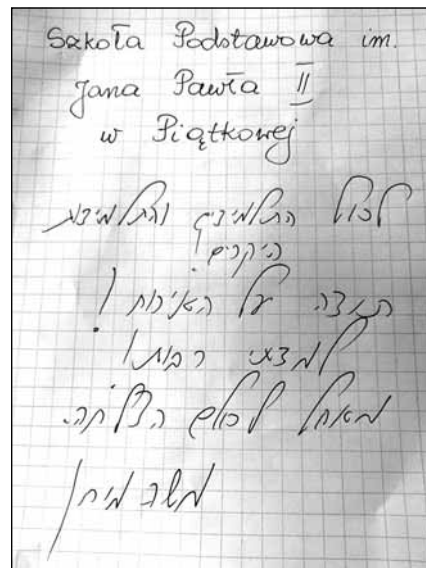 Szkoła Podstawowa im.
Jana Pawła II
w Piątkowej
לכול התלמידים והתלמידות
היקרים!
תודה על האירוח!
למדתי רבות!
מאחל לכולם הצלחה.